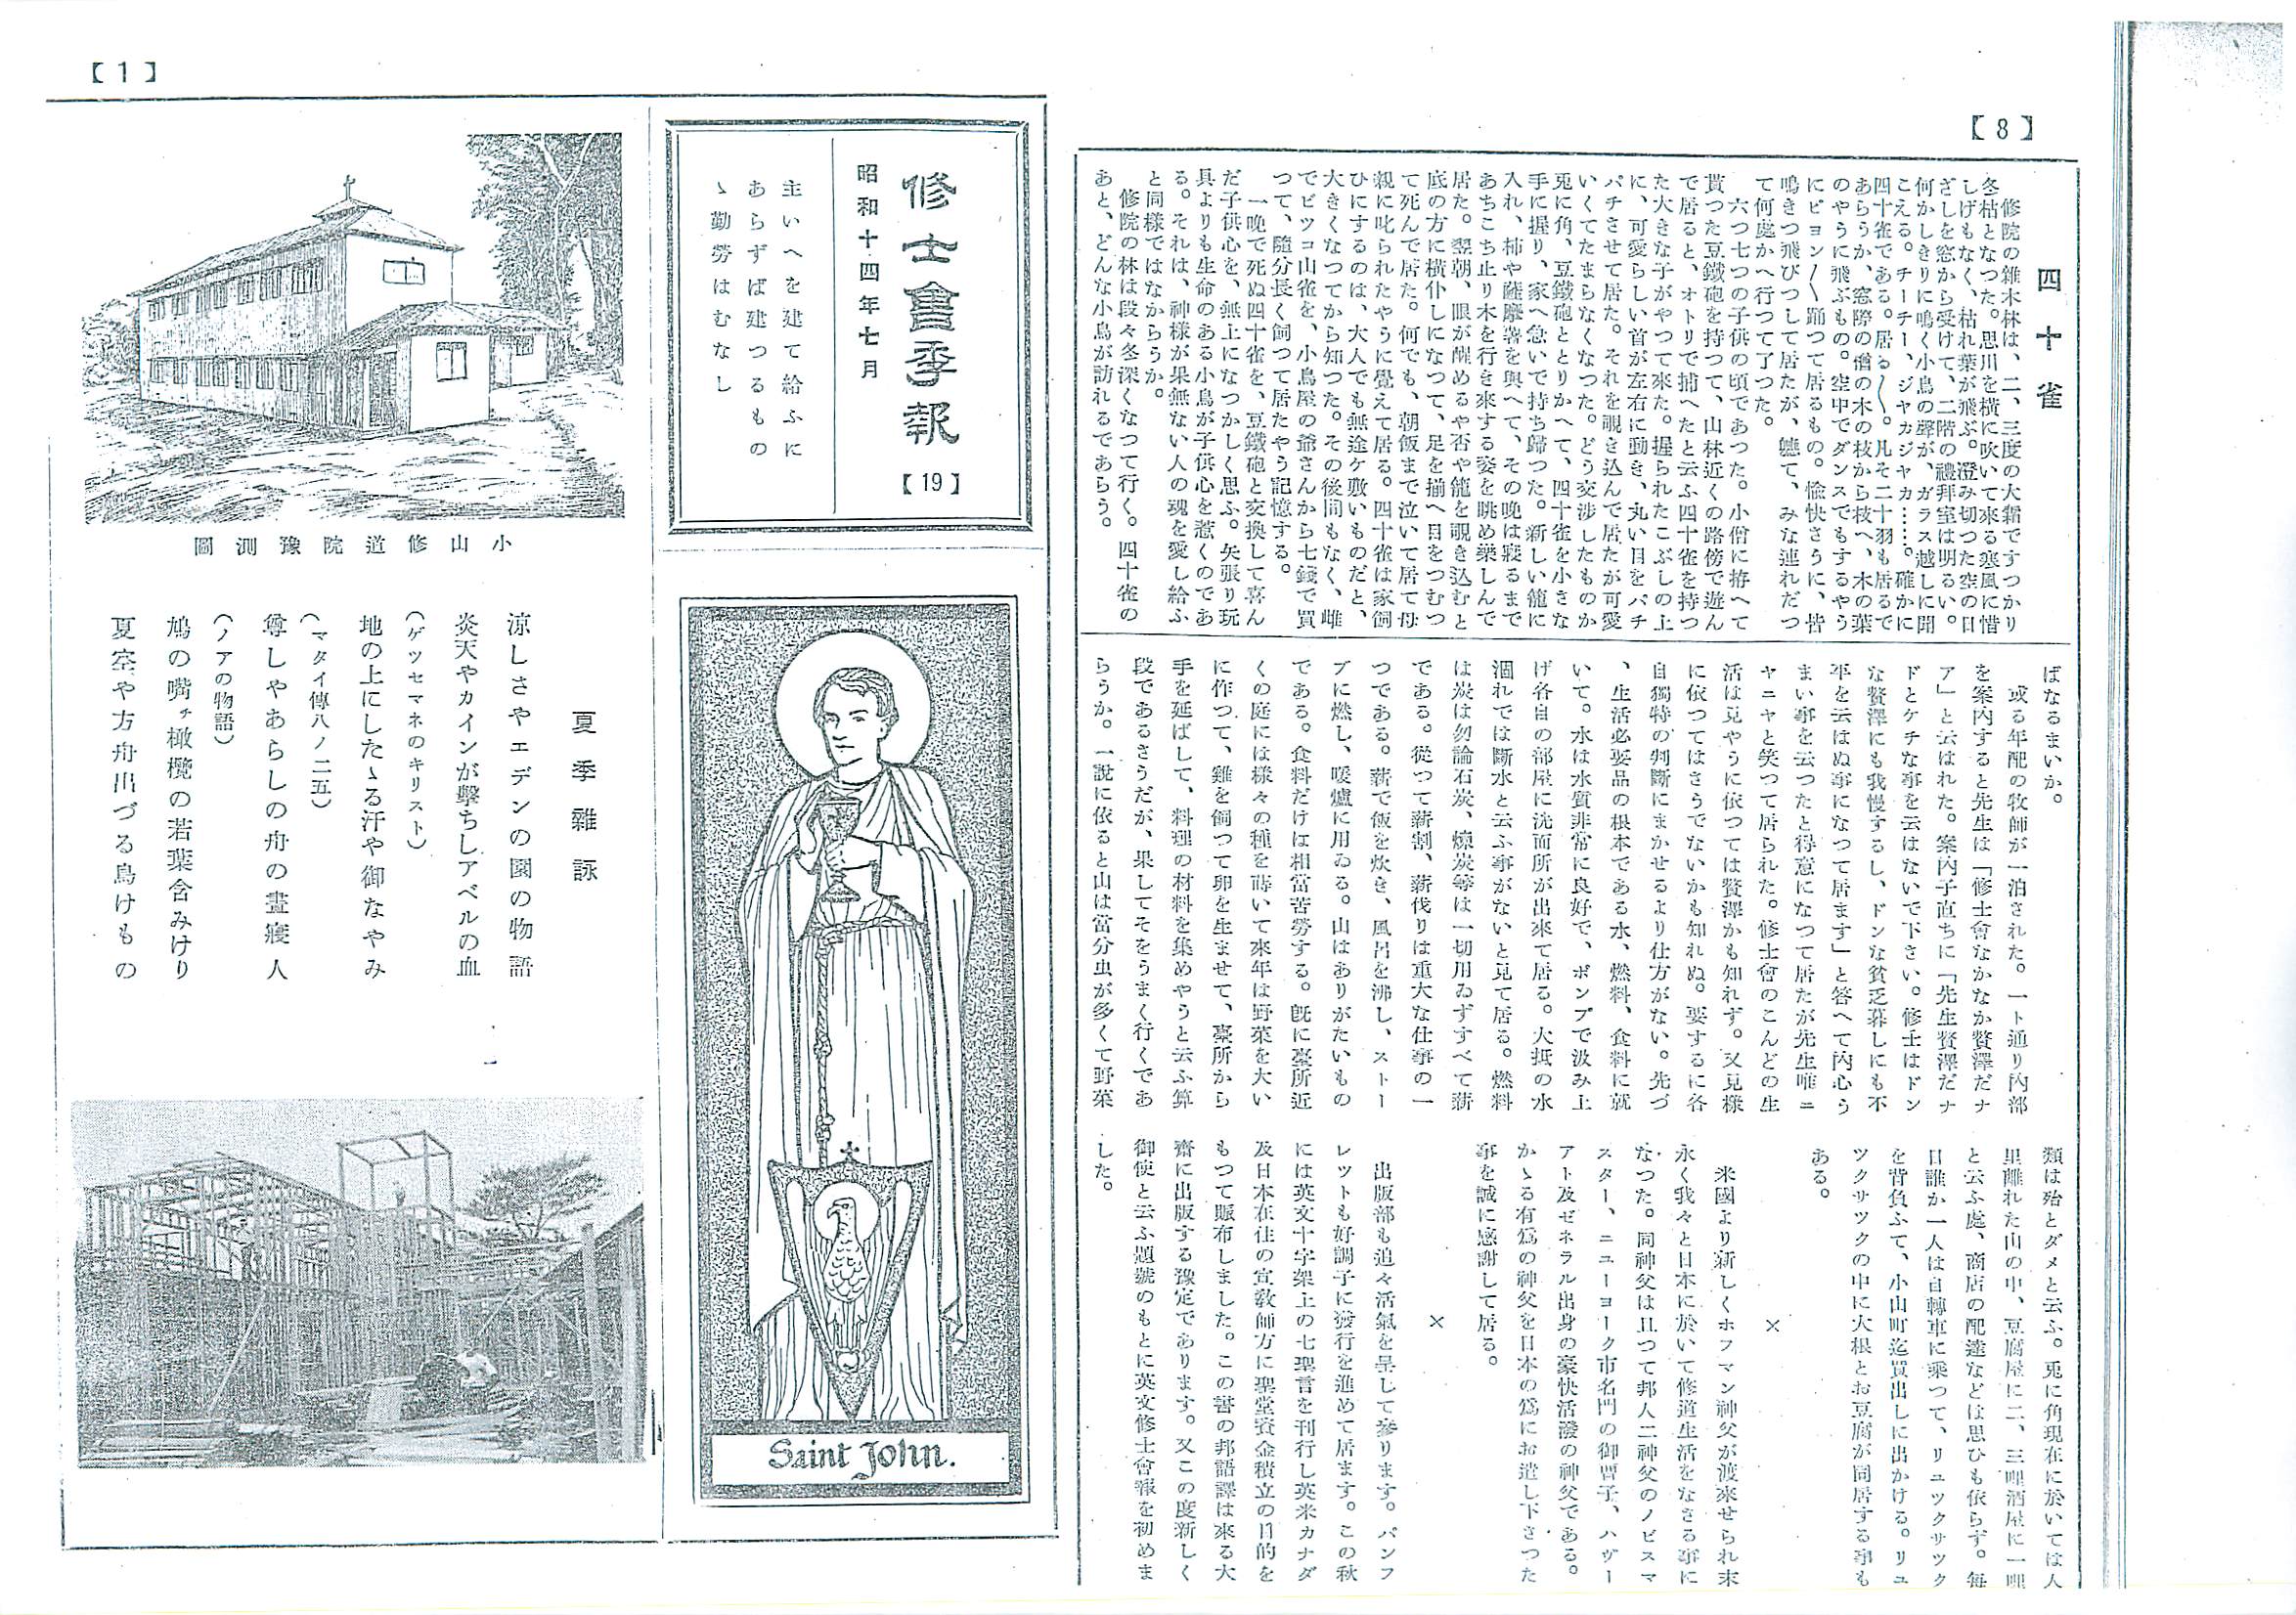 【8】
四十雀
修院の雑木林は、二、三度の大霜ですつかり
冬枯となつた。思川を横に吹いて来る寒風に惜
しげもなく、枯れ葉が飛ぶ。澄み切つた空の日
ざしを窓から受けて、二階の禮拜室は明るい。
何かしきりに鳴く小鳥の聲が、ガラス越しに聞
こえる。チーチー、ジヤカジヤカ……。確かに
四十雀である。居る〱。凡そ二十羽も居るで
あらうか、窓際の僧の木の枝から枝へ、木の葉
のやうに飛ぶもの。空中でダンスでもするやう
にピヨン〱踊つて居るもの。愉快さうに、皆
鳴きつ飛びつして居たが、軈て、みな連れだつ
て何處かへ行つて了つた。
六つ七つの子供の頃であつた。小僧に拵へて
貰つた豆鐵砲を持つて、山林近くの路傍で遊ん
で居ると、オトリで捕へたと云ふ四十雀を持つ
た大きな子がやつて來た。握られたこぶしの上
に、可愛らしい首が左右に動き、丸い目をパチ
パチさせて居た。それを覗き込んで居たが可愛
いくてたまらなくなつた。どう交渉したものか
兎に角、豆鐵砲ととりかへて、四十雀を小さな
手に握り、家へ急いで持ち歸つた。新しい籠に
入れ、柿や薩摩薯を與へて、その晩は寝るまで
あちこち止り木を行き來する姿を眺め樂しんで
居た。翌朝、眼が醒めるや否や籠を覗き込むと
底の方に横仆しになつて、足を揃へ目をつむつ
て死んで居た。何でも、朝飯まで泣いて居て母
親に叱られたやうに覺えて居る。四十雀は家飼
ひにするのは、大人でも無途ケ敷いものだと、
大きくなつてから知つた。その後間もなく、雌
でビツコ山雀を、小鳥屋の爺さんから七錢で買
つて、隨分長く飼つて居たやう記憶する。
一晩で死ぬ四十雀を、豆鐵砲と交換して喜ん
だ子供心を、無上になつかしく思ふ。矢張り玩
具よりも生命のある小鳥が子供心を惹くのであ
る。それは、神様が果無ない人の魂を愛し給ふ
と同様ではなからうか。
修院の林は段々冬深くなつて行く。四十雀の
あと、どんな小鳥が訪れるであらう。
ばなるまいか。
或る年配の牧師が一泊された。一ト通り内部
を案内すると先生は「修士會なかなか贅澤だナ
ア」と云はれた。案内子直ちに「先生贅澤だナ
ドとケチな事を云はないで下さい。修士はドン
な贅澤にも我慢するし、ドンな貧乏暮しにも不
平を云はぬ事になつて居ます」と答へて内心う
まい事を云つたと得意になつて居たが先生唯ニ
ヤニヤと笑つて居られた。修士會のこんどの生
活は見やうに依つては贅澤かも知れず。又見様
に依つてはさうでないかも知れぬ。要するに各
自獨特の判斷にまかせるより仕方がない。先づ
、生活必要品の根本である水、燃料、食料に就
いて。水は水質非常に良好で、ポンプで汲み上
げ各自の部屋に洗面所が出來て居る。大抵の水
涸れでは斷水と云ふ事がないと見て居る。燃料
は炭は勿論石炭、煉炭等は一切用ゐずすべて薪
である。從つて薪割、薪伐りは重大な仕事の一
つである。薪で飯を炊き、風呂を沸し、ストー
ブに燃し、暖爐に用ゐる。山はありがたいもの
である。食料だけは相當苦勞する。旣に臺所近
くの庭には様々の種を蒔いて來年は野菜を大い
に作つて、雞を飼つて卵を生ませて、臺所から
手を延ばして、料理の材料を集めやうと云ふ算
段であるさうだが、果してそをうまく行くであ
らうか。一說に依ると山は當分虫が多くて野菜
類は殆とダメと云ふ。兎に角現在に於いては人
里離れた山の中、豆腐屋に二、三哩酒屋に一哩
と云ふ處、商店の配達などは思ひも依らず。毎
日誰か一人は自轉車に乘つて、リユツクサツク
を背負ふて、小山町迄買出しに出かける。リユ
ツクサツクの中に大根とお豆腐が同居する事も
ある。
×
米國より新しくホフマン神父が渡來せられ末
永く我々と日本に於いて修道生活をなさる事に
なつた。同神父は且つて邦人二神父のノビスマ
スター、ニユーヨーク市名門の御曹子、ハヴー
アト及ゼネラル出身の豪快活潑の神父である。
かゝる有爲の神父を日本の爲にお遣し下さつた
事を誠に感謝して居る。
×
出版部も追々活氣を呈して參ります。パンフ
レツトも好調子に發行を進めて居ます。この秋
には英文十字架上の七聖言を刊行し英米カナダ
及日本在住の宣教師方に聖堂資金積立の目的を
もつて賑布しました。この書の邦語譯は來る大
齋に出版する豫定であります。又この度新しく
御使と云ふ題號のもとに英文修士會報を初めま
した。
【1】
修士會季報
【19】
昭和十四年七月
主いへを建て給ふに
あらずば建つるもの
ゝ勤勞はむなし
Saint John.
小山修道院豫測圖
夏季雜詠
涼しさやエデンの園の物語
炎天やカインが擊ちしアベルの血
(ゲツセマネのキリスト)
地の上にしたゝる汗や御なやみ
(マタイ傳八ノ二五)
尊しやあらしの舟の晝寢人
(ノアの物語)
鳩の嘴ヶ橄欖の若葉含みけり
夏空や方舟出づる鳥けもの